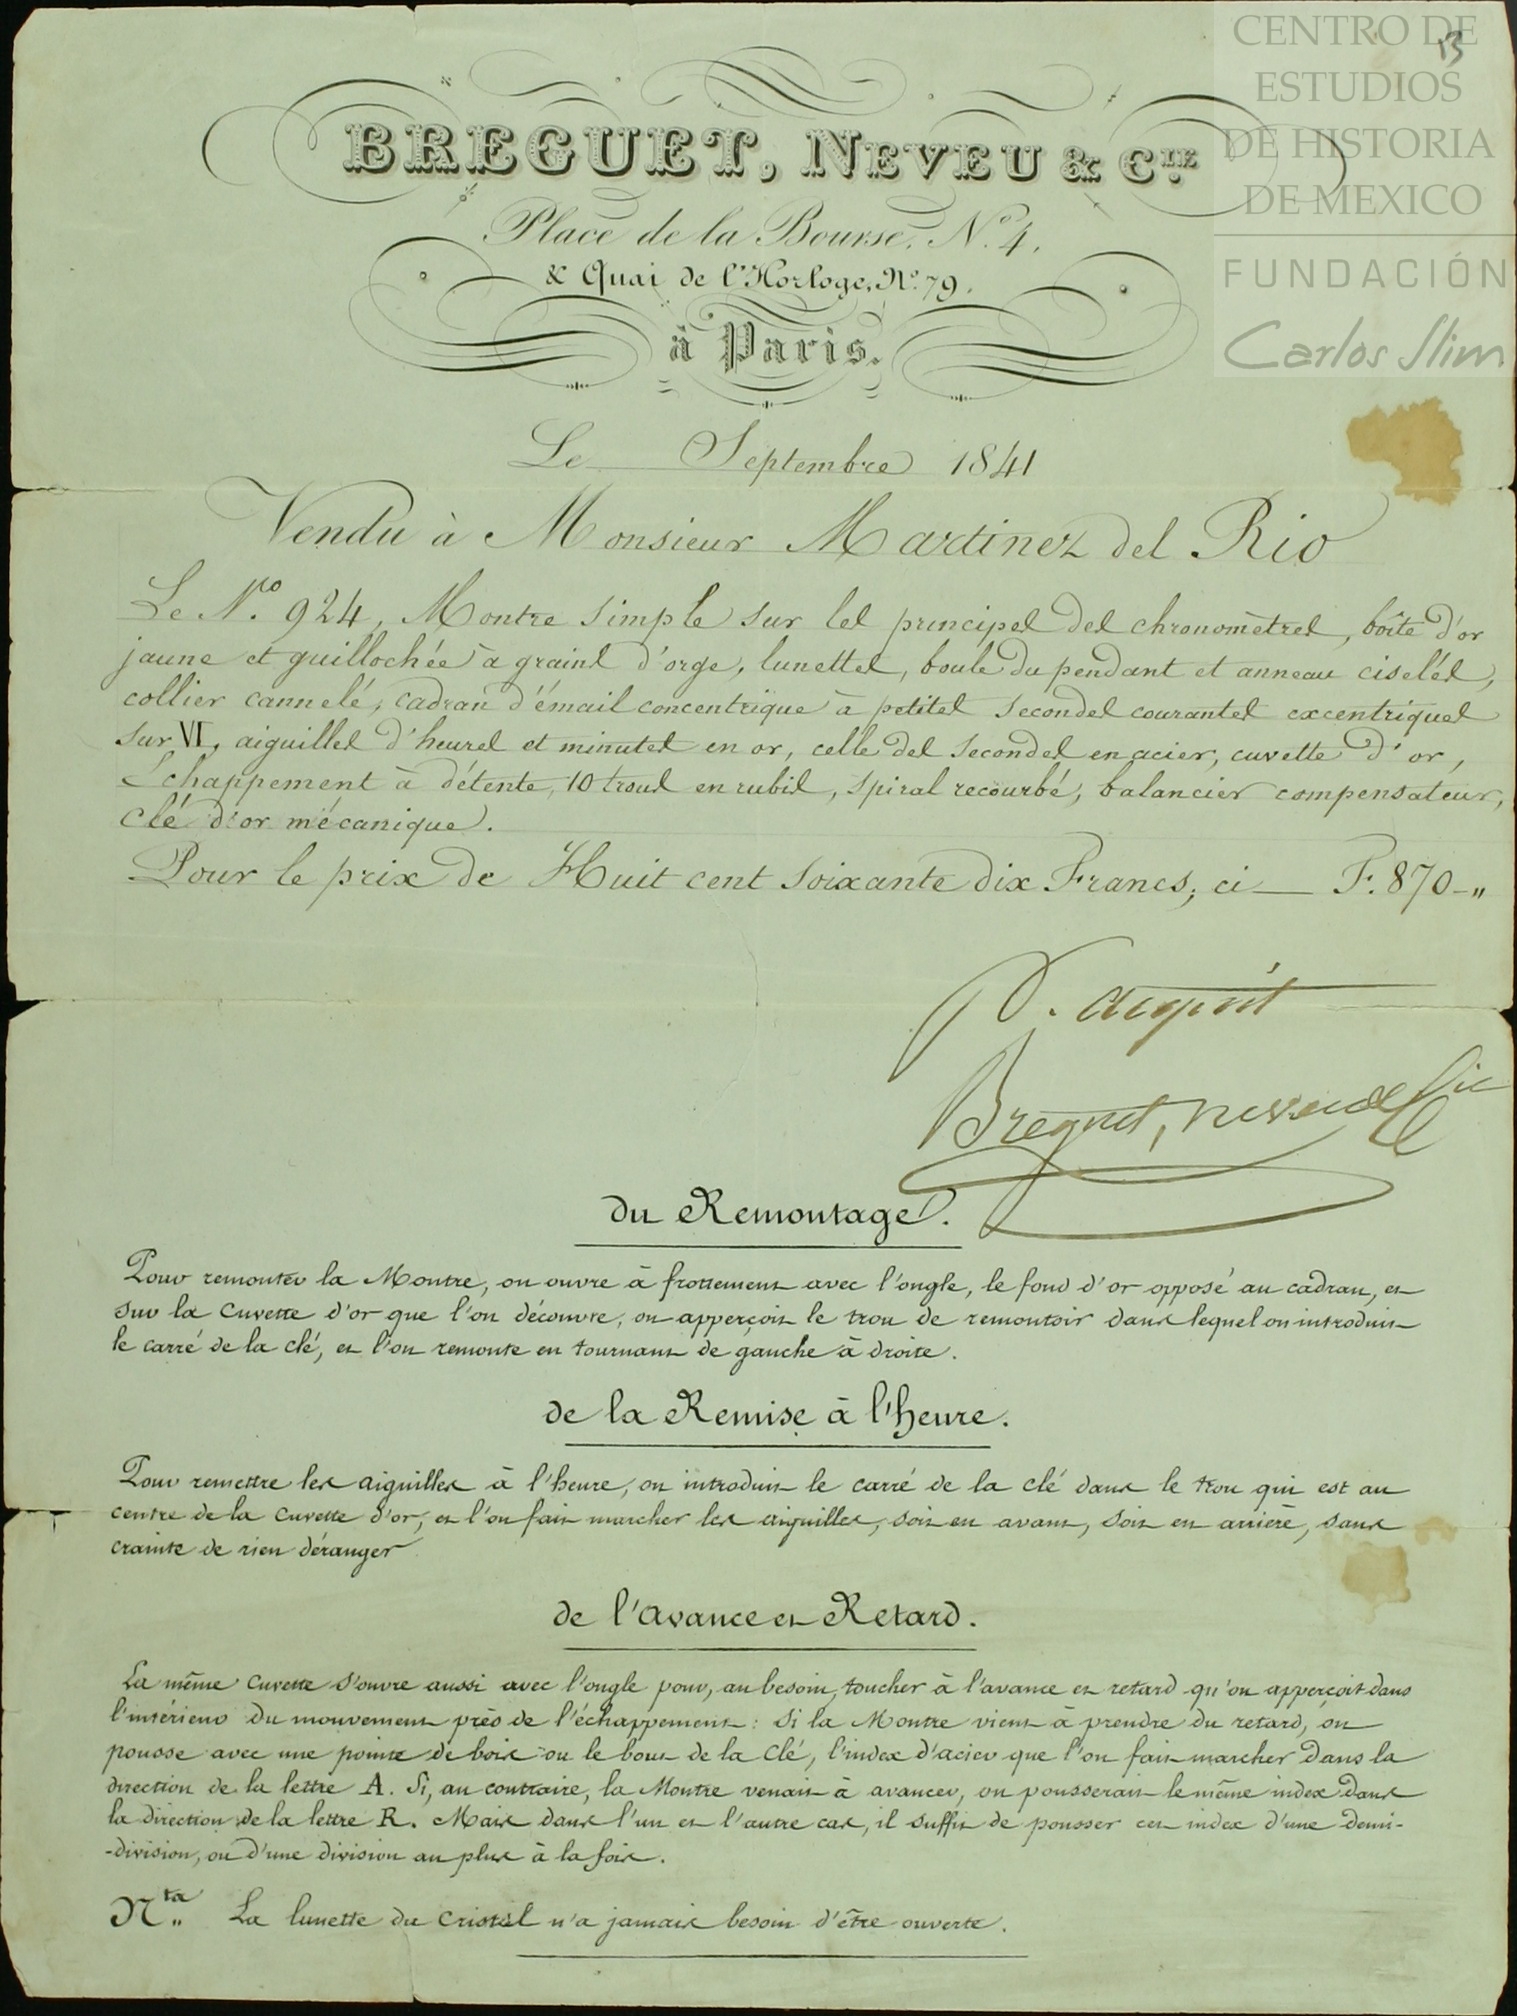 CENTRO DE
ESTUDIOS
DE HISTORIA
DE MEXICO
FUNDACIÓN
Carlos Slim
13
BREGUET, NEVEU & CIE.
Place de la Bourse, N.º 4,
& Quai de l'Horloge, N.º 79,
à Paris.
Le Septembre 1841
Vendu à Monsieur Martinez del Rio
Le N.º 924, Montre simple sur les principes des chronomètres, boîte d'or
jaune et guillochée à grains d'orge, lunettes, boule du pendant et anneau ciselés,
collier cannelé, cadran d'émail concentrique à petites secondes courantes excentriques
sur VI, aiguilles d'heures et minutes en or, celle des secondes en acier, cuvette d'or,
Echappement à détente, 10 trous en rubis, spiral recourbé, balancier compensateur,
clé d'or mécanique.
Pour le prix de Huit cent soixante dix Francs, ci F. 870-"
P. acquit
Breguet, neveu & Cie
du Remontage.
Pour remonter la Montre, on ouvre à frottement avec l'ongle, le fond d'or opposé au cadran, et
sur la cuvette d'or que l'on découvre, on apperçoit le trou de remontoir dans lequel on introduit
le carré de la clé, et l'on remonte en tournant de gauche à droite.
de la Remise à l'heure.
Pour remettre les aiguilles à l'heure, on introduit le carré de la clé dans le trou qui est au
centre de la cuvette d'or, et l'on fait marcher les aiguilles, soit en avant, soit en arrière, sans
crainte de rien déranger
de l'avance et Retard.
La même cuvette s'ouvre aussi avec l'ongle pour, au besoin, toucher à l'avance et retard qu'on apperçoit dans
l'intérieur du mouvement près de l'échappement : Si la Montre vient à prendre du retard, on
pousse avec une pointe de bois ou le bout de la clé, l'index d'acier que l'on fait marcher dans la
direction de la lettre A. Si, au contraire, la Montre venait à avancer, on pousserait le même index dans
la direction de la lettre R. Mais dans l'un et l'autre cas, il suffit de pousser cet index d'une demi-
-division, ou d'une division au plus à la fois.
Nta La lunette du cristal n'a jamais besoin d'être ouverte.